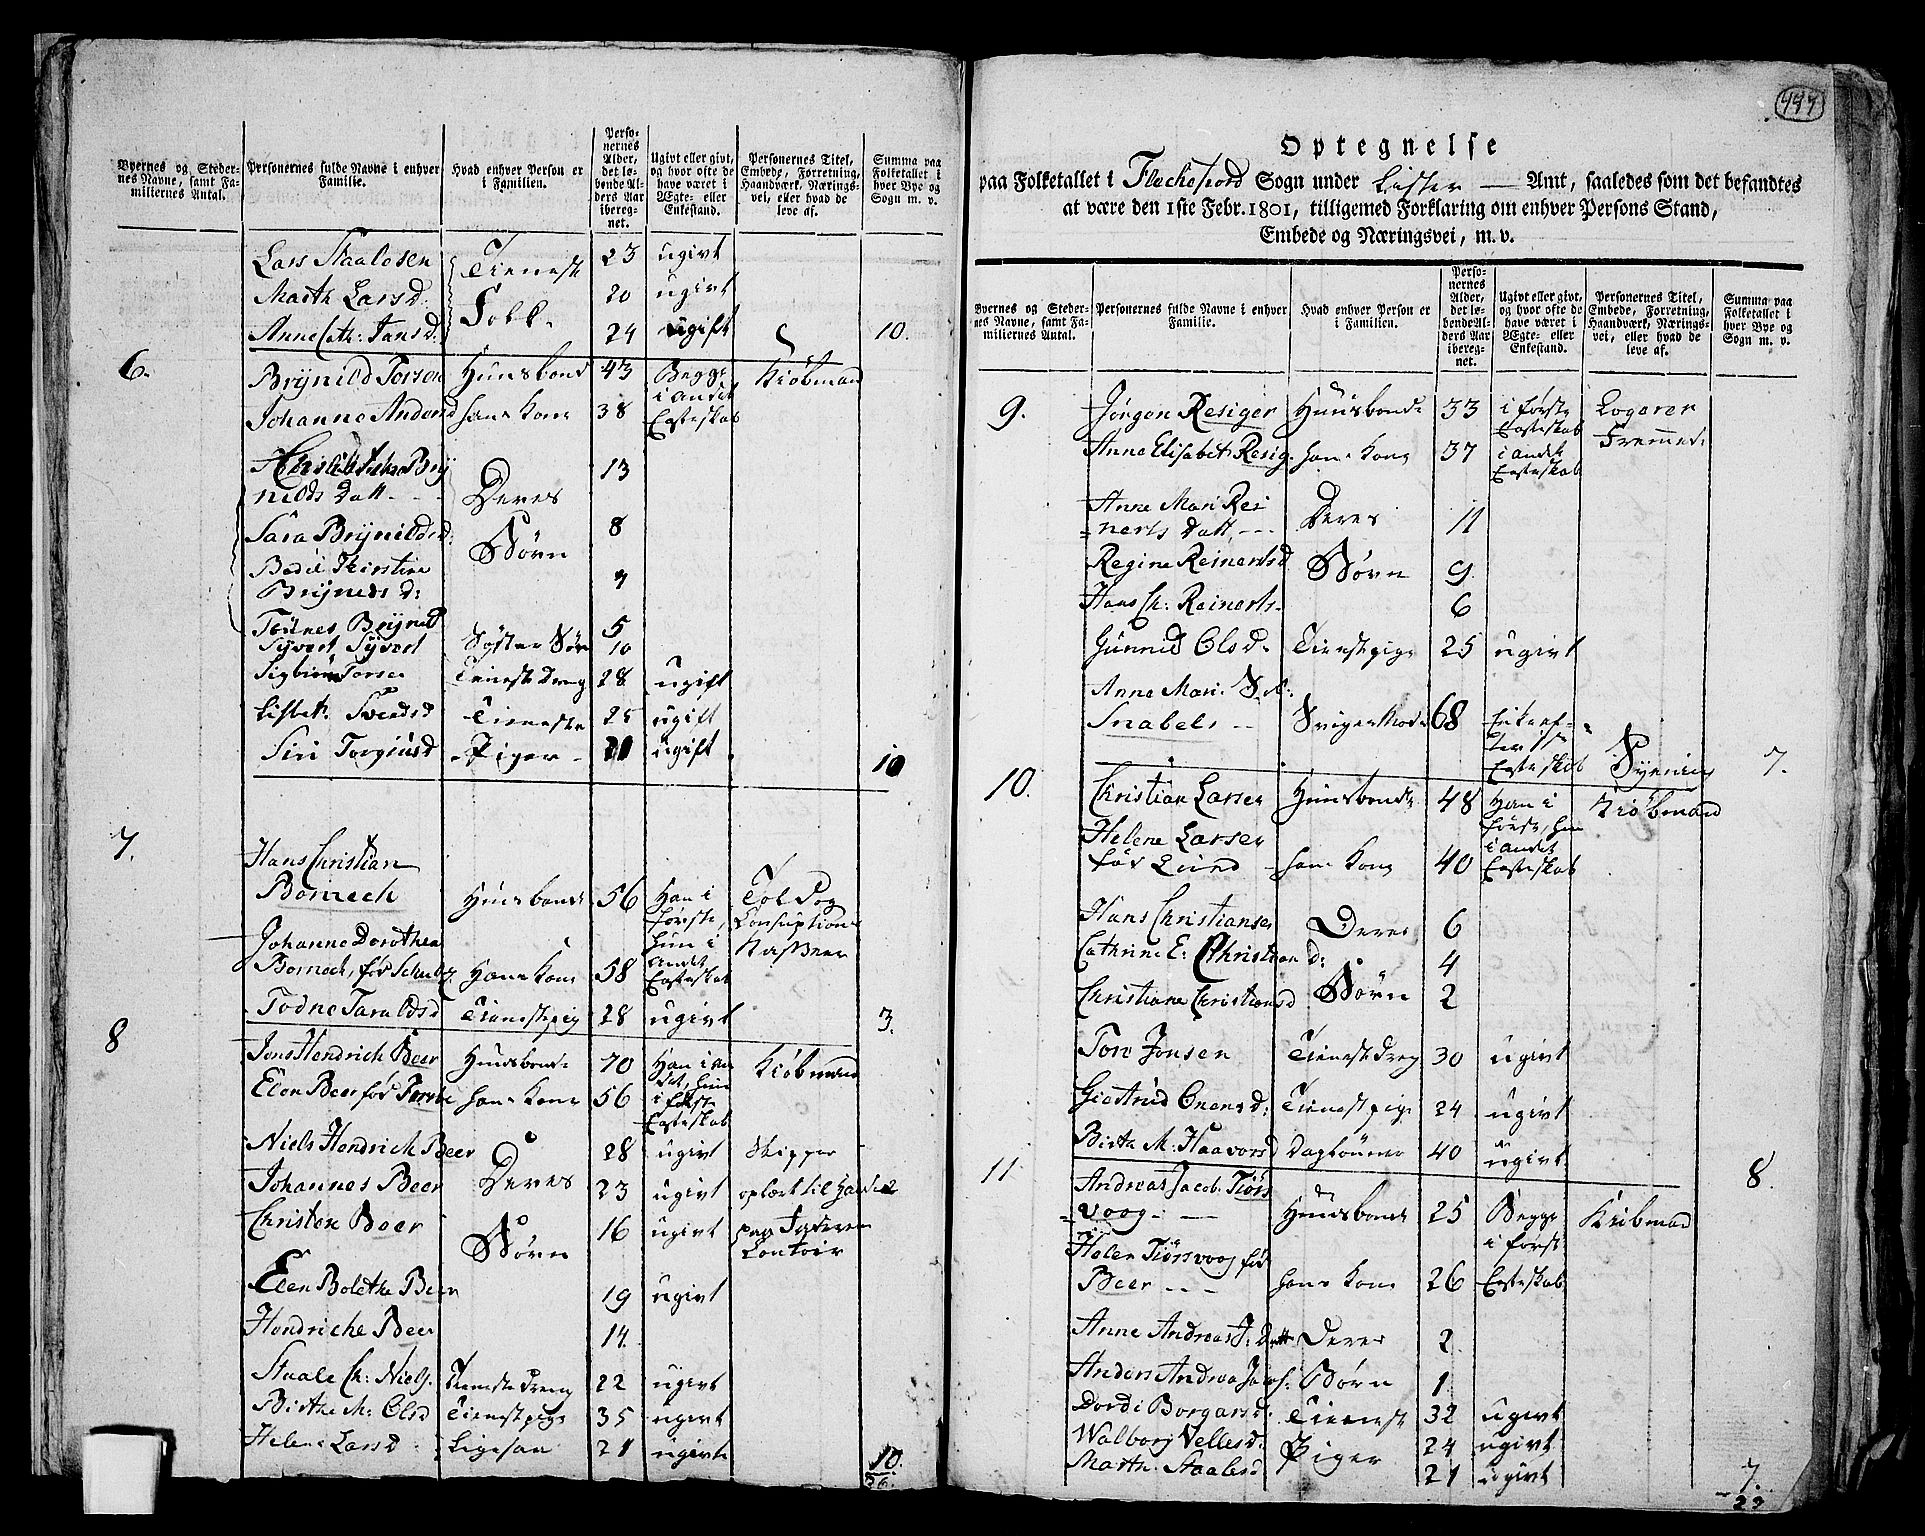 Byernes og Stedernes Navne, samt Familiernes Antal.
Personernes fulde Navne i enhver Familie.
Hvad enhver Person er i Familien.
Personernes Alder, det lebende Alders Aar iberegnet.
Ugivt eller givt, og hvor ofte de have været i Ægte- eller Enkestand.
Personernes Titel, Embede, Forretning, Haandværk, Næringsvei, eller hvad de leve af.
Summa paa Folketallet i hver Bye og Sogn m. v.
Lars Staalesen Tieneste 23 ugivt
Marth Larsd: Folk 20 ugivt
Anne Cath: Jansd. 24 ugift 10.
6. Brynild Torsen Huusbond 43 Begge Kiøbmand
i andet
Johanne Andersd hans Kone 38 Egteskab
Bry
nilds Datt - - 13
Deres
Sara Brynildsd: 8
Børn
Bodil Kirstine
Brynelds d: 7
Tønnes Brynild 5
Syvert Syvert Søster Søn 10
Sigbiørn Torsen Tieneste Dreng 28 ugift
Lisbet Svendsd Tieneste 25 ugift
Siri Torgiusd Piger 21 ugift 10
7. Hans Christian
Bornech Huusbond 56 Han i Told og
første, Consuption
Johanne Dorothea hun i Kasseer
andet
Bornech, fød Schultz Hans Kone 58 Egteskab
Todne Taraldsd Tienestepig 28 ugivt 3.
8 Jens Hendrich Beer Huusbonde 70 Han i an Kiøbmand
det, hun
Elen Beer fød hans Kone 56 i først
Egteskab
Niels Hendrich Beer 28 ugivt Skipper
Deres
Johannes Beer 23 ugivt oplært til Handel
Christen Beer 16 ugivt paa Faderens
Børn Contoir
Elen Bolethe Beer 19 ugivt
Hendriche Beer 14.
Staale Ch: Niels. Tieneste Dreng 22 ugivt
Birthe M: Olsd Tienestpige 35 ugivt
Helene Larsd Ligesaa 21 ugivt 10.
36.
447
Optegnelse
paa Folketallet i Flechefiord Sogn under Lister — Amt, saaledes som det befandtes
at være den 1ste Febr. 1801, tilligemed Forklaring om enhver Persons Stand,
Embede og Næringsvei, m. v.
Byernes og Stedernes Navne, samt Familiernes Antal.
Personernes fulde Navne i enhver Familie.
Hvad enhver Person er i Familien.
Personernes Alder, det lebende Alders Aar iberegnet.
Ugivt eller givt, og hvor ofte de have været i Ægte- eller Enkestand.
Personernes Titel, Embede, Forretning, Haandværk, Næringsvei, eller hvad de leve af.
Summa paa Folketallet i hver Bye og Sogn m. v.
9. Jørgen Resiger Huusbonde 33 i første Logerer
Egteskab Fremmede
Anne Elisabet Resig. hans Kone 37 i andet
Egteskab
Anne Mari Rei
=nerts Datt - - Deres 11
Regine Reinertsd Børn 9
Hans Ch: Reinerts. 6
Gunnild Olsd. Tienestpige 25 ugivt
Anne Mari
Snabels - - Svigermoder 68 Enke ef-
ter 1ste
Egteskab 7.
10. Christian Larsen Huusbonde 48 Han i Kiøbmand
første, hun
Helene Larsen i andet
fød Lund hans Kone 40 Egteskab
Hans Christiansen Deres 6
Cathrine E: Christian d: 4
Christiane Christiansd Børn 2
Tore Jonsen Tieneste Dreng 30 ugivt
Giertrud Onensd: Tienestpige 24 ugivt
Birthe M: Haavorsd Daglønner 40 ugivt 8.
11. Andreas Jacob Tiørs
=voog - — Huusbonde 25 Begge Kiøbmand
i først
Helen Tiørsvoog fød
Beer - - - hans Kone 26 Egteskab
Anne Andreas J: Datt Deres 2
Anders Andreas Jacobs: Børn 1
Dordi Borgarsd: Tieneste 32 ugivt
Walborg Vellesd: Piger 24 ugivt
Marth. Staalesd 21 ugivt 7.
22